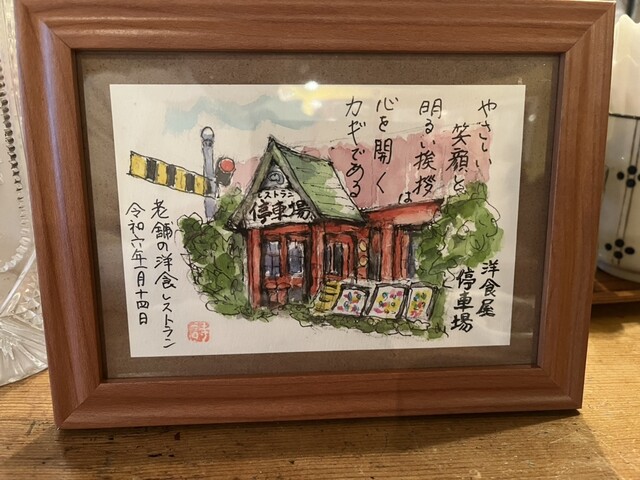 やさしい
笑顔と
明るい挨拶は
心を開く
カギである
洋食屋
停車場
レストラン
停車場
老舗の洋食レストラン
令和六年一月十四日